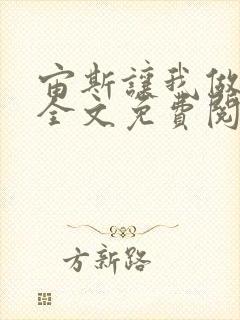 宙斯讓我做
全文免費閱
方新路